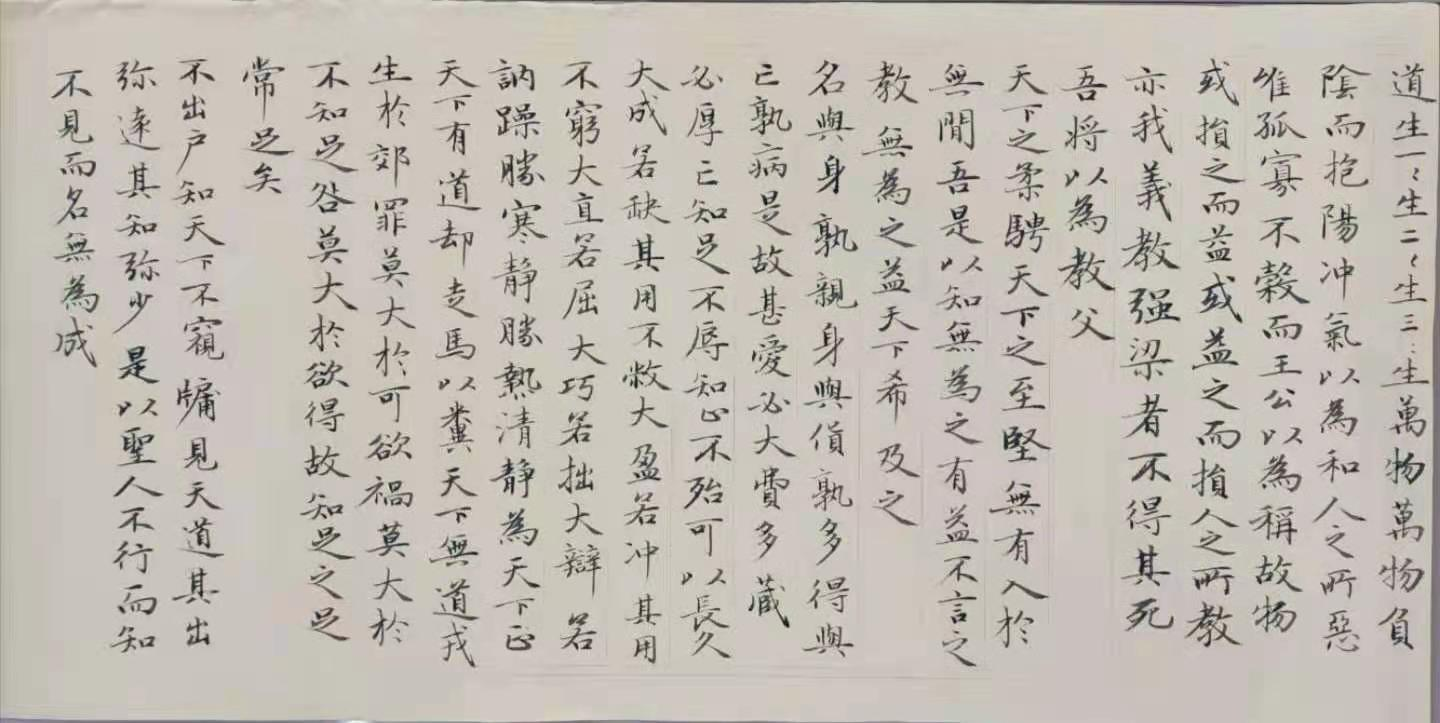 道生一〻生二〻生三〻生萬物萬物負
陰而抱陽冲氣以為和人之所惡
唯孤寡不穀而王公以為稱故物
或損之而益或益之而損人之所教
亦我義教强梁者不得其死
吾将以為教父
天下之柔騁天下之至堅無有入於
無間吾是以知無為之有益不言之
教無為之益天下希及之
名與身孰親身與貨孰多得與
亡孰病是故甚愛必大費多藏
必厚亡知足不辱知止不殆可以長久
大成若缺其用不敝大盈若冲其用
不窮大直若屈大巧若拙大辯若
訥躁勝寒静勝熱清静為天下正
天下有道却走馬以糞天下無道戎
生於郊罪莫大於可欲禍莫大於
不知足咎莫大於欲得故知足之足
常足矣
不出户知天下不窺牖見天道其出
弥遠其知弥少是以聖人不行而知
不見而名無為成